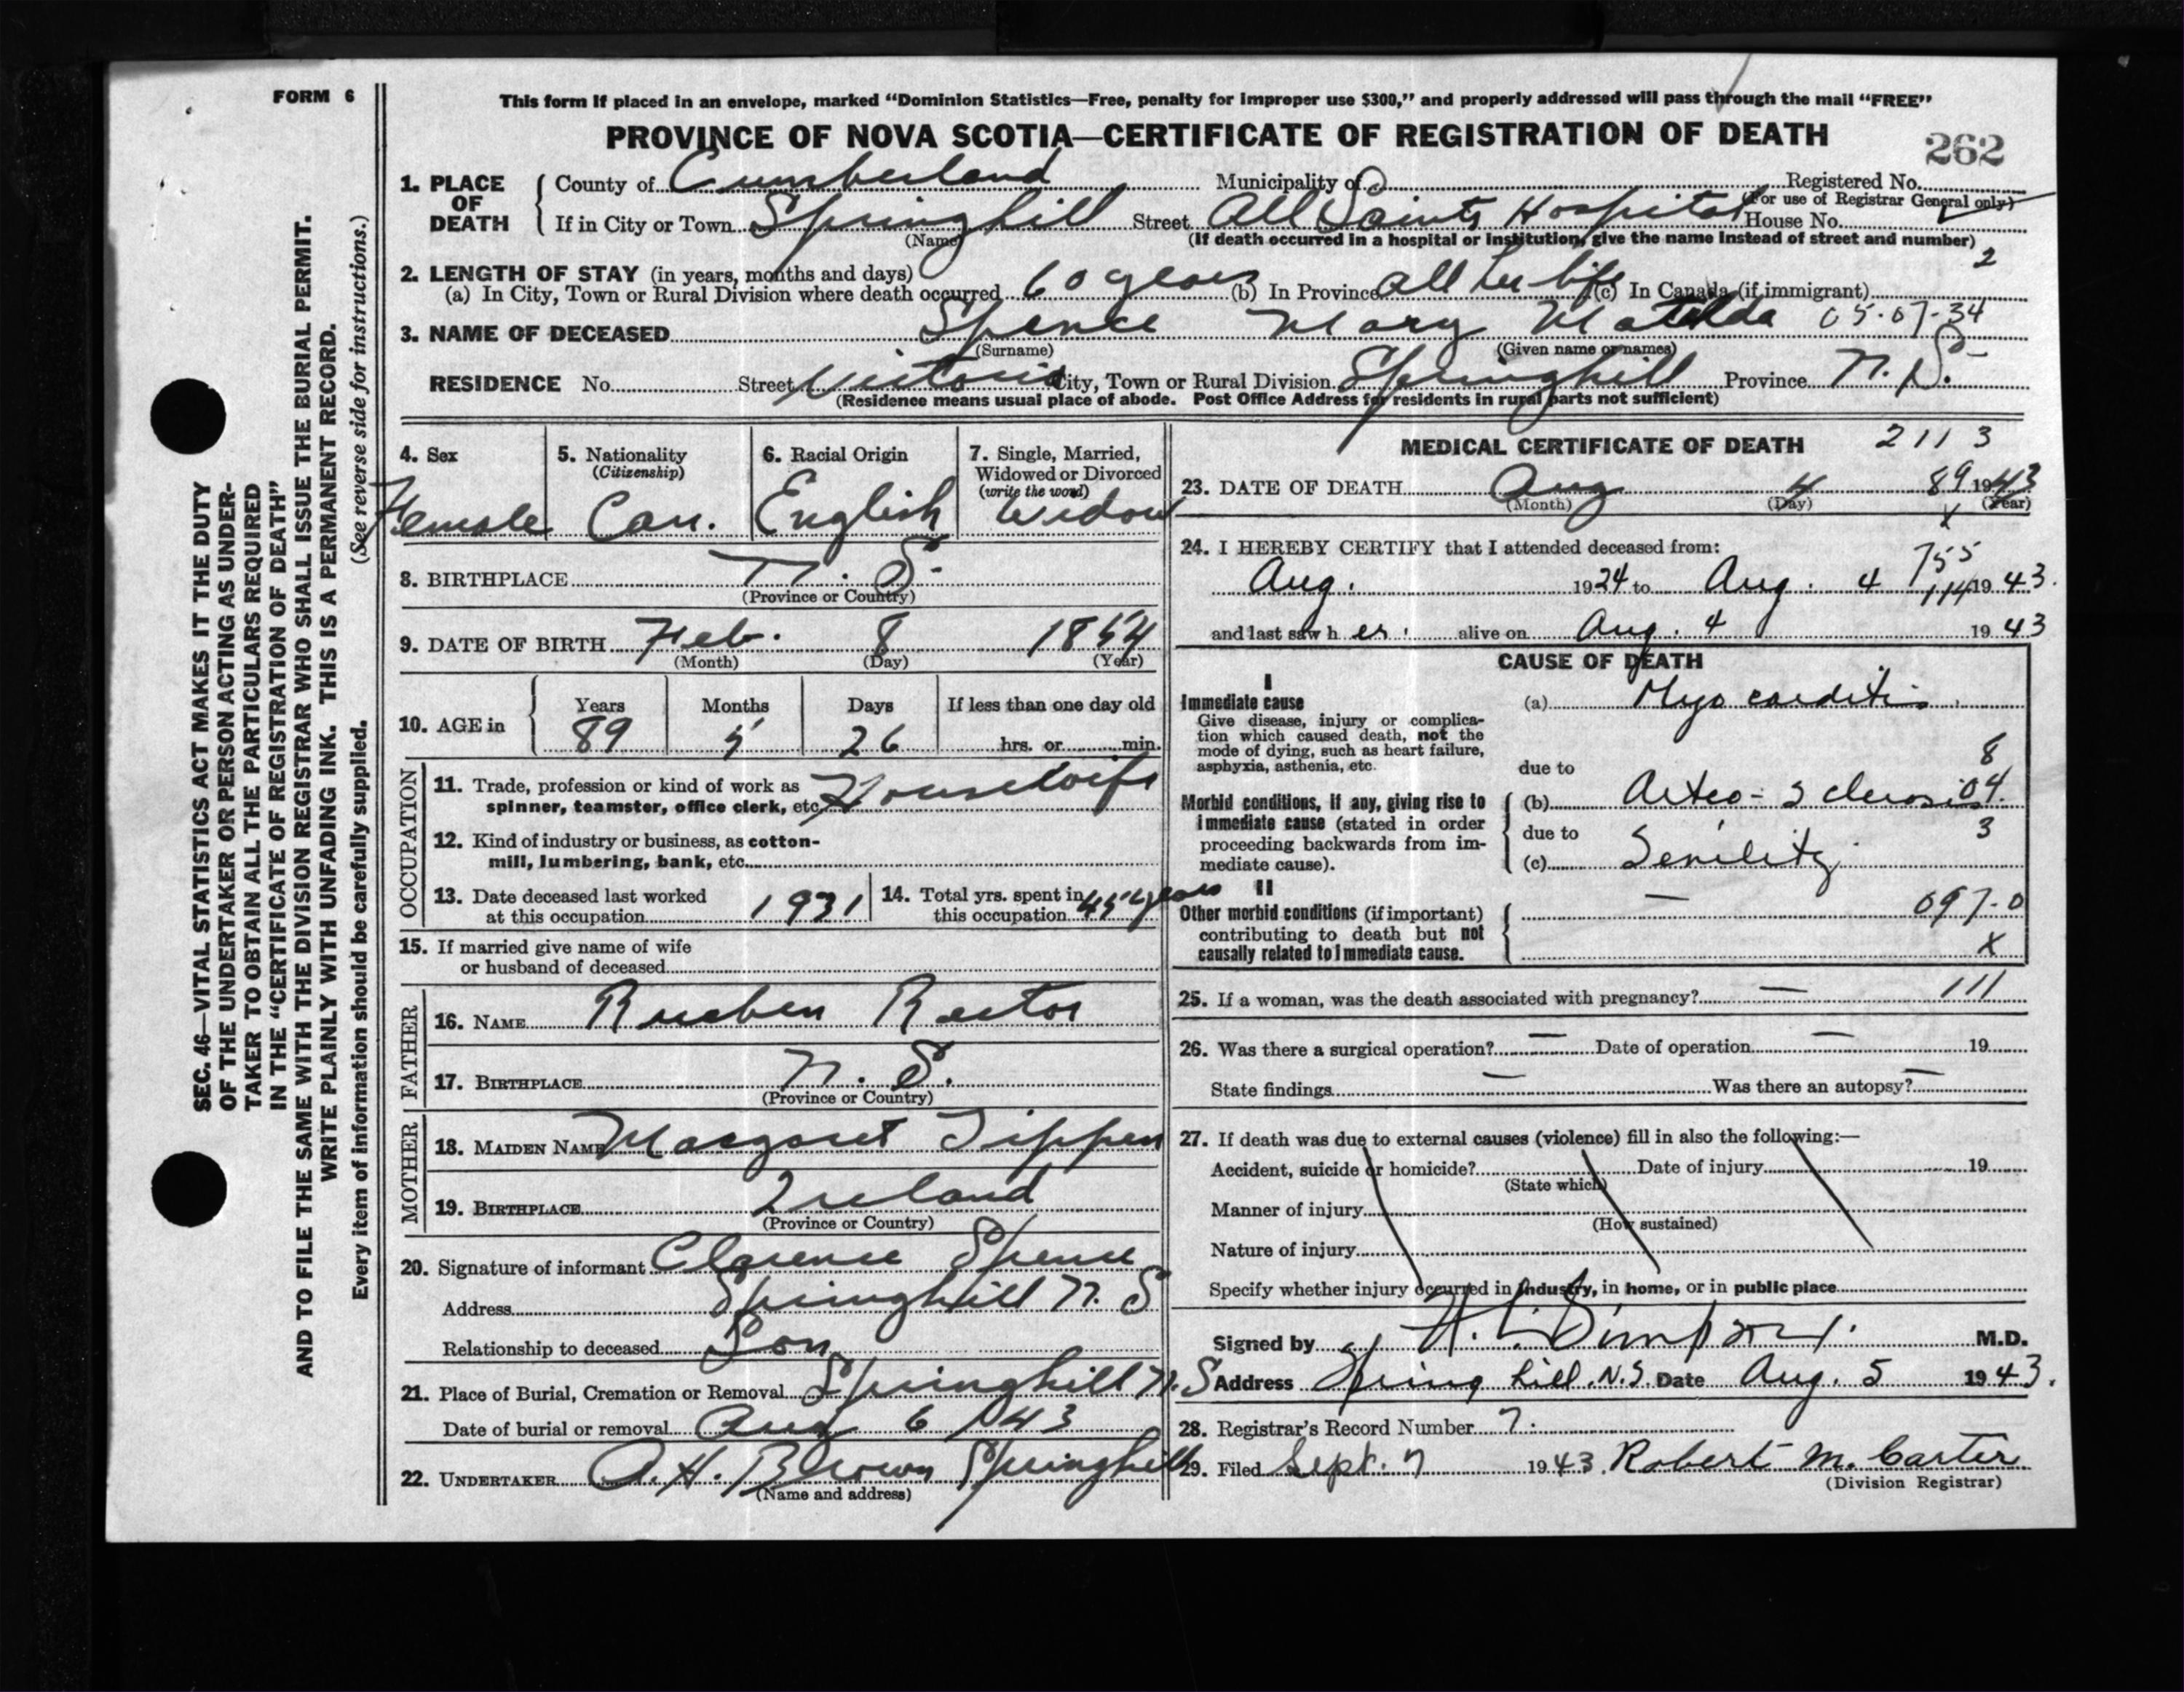 FORM 6
This form if placed in an envelope, marked “Dominion Statistics—Free, penalty for improper use $300,” and properly addressed will pass through the mail “FREE”
PROVINCE OF NOVA SCOTIA—CERTIFICATE OF REGISTRATION OF DEATH
262
1. PLACE OF DEATH
County of Cumberland Municipality of Registered No.
(For use of Registrar General only)
If in City or Town Springhill Street All Saints Hospital House No.
(Name) (If death occurred in a hospital or institution, give the name instead of street and number)
2
2. LENGTH OF STAY (in years, months and days)
(a) In City, Town or Rural Division where death occurred 60 years (b) In Province All her life (c) In Canada (if immigrant)
3. NAME OF DECEASED Spence Mary Matilda 05-07-34
(Surname) (Given name or names)
RESIDENCE No. Street Victoria City, Town or Rural Division Springhill Province N.S.
(Residence means usual place of abode. Post Office Address for residents in rural parts not sufficient)
4. Sex
Female
5. Nationality
(Citizenship)
Can.
6. Racial Origin
English
7. Single, Married,
Widowed or Divorced
(write the word)
Widow
8. BIRTHPLACE N. S.
(Province or Country)
9. DATE OF BIRTH Feb. 8 1854
(Month) (Day) (Year)
10. AGE in
Years Months Days If less than one day old
89 5 26 hrs. or min.
OCCUPATION
11. Trade, profession or kind of work as
spinner, teamster, office clerk, etc. Housewife
12. Kind of industry or business, as cotton-
mill, lumbering, bank, etc.
13. Date deceased last worked
at this occupation 1931
14. Total yrs. spent in
this occupation 45 years
15. If married give name of wife
or husband of deceased
FATHER
16. NAME Rueben Rector
17. BIRTHPLACE N. S.
(Province or Country)
MOTHER
18. MAIDEN NAME Margaret Tippen
19. BIRTHPLACE Ireland
(Province or Country)
20. Signature of informant Clarence Spence
Address Springhill N. S
Relationship to deceased Son
21. Place of Burial, Cremation or Removal Springhill N. S
Date of burial or removal Aug 6 1943
22. UNDERTAKER A. H. Brown Springhill
(Name and address)
MEDICAL CERTIFICATE OF DEATH 2113
23. DATE OF DEATH Aug 4 89 1943
(Month) (Day) (Year)
x
24. I HEREBY CERTIFY that I attended deceased from:
755
Aug. 1924 to Aug. 4 114 1943.
and last saw her alive on Aug. 4 1943
CAUSE OF DEATH
I
Immediate cause
Give disease, injury or complica-
tion which caused death, not the
mode of dying, such as heart failure,
asphyxia, asthenia, etc.
(a) Myocarditis
8
due to
Morbid conditions, if any, giving rise to
immediate cause (stated in order
proceeding backwards from im-
mediate cause).
(b) Arteo-sclerosis 04.
due to 3
(c) Senility
II
Other morbid conditions (if important)
contributing to death but not
causally related to immediate cause.
— 097-0
x
25. If a woman, was the death associated with pregnancy? — 111
26. Was there a surgical operation? — Date of operation — 19
State findings — Was there an autopsy? —
27. If death was due to external causes (violence) fill in also the following:—
Accident, suicide or homicide? Date of injury 19
(State which)
Manner of injury
(How sustained)
Nature of injury
Specify whether injury occurred in industry, in home, or in public place
Signed by Simpson. M.D.
Address Springhill. N.S. Date Aug. 5 1943.
28. Registrar's Record Number 7.
29. Filed Sept. 7 1943. Robert M. Carter
(Division Registrar)
SEC. 46—VITAL STATISTICS ACT MAKES IT THE DUTY
OF THE UNDERTAKER OR PERSON ACTING AS UNDER-
TAKER TO OBTAIN ALL THE PARTICULARS REQUIRED
IN THE “CERTIFICATE OF REGISTRATION OF DEATH”
AND TO FILE THE SAME WITH THE DIVISION REGISTRAR WHO SHALL ISSUE THE BURIAL PERMIT.
WRITE PLAINLY WITH UNFADING INK. THIS IS A PERMANENT RECORD.
Every item of information should be carefully supplied. (See reverse side for instructions.)